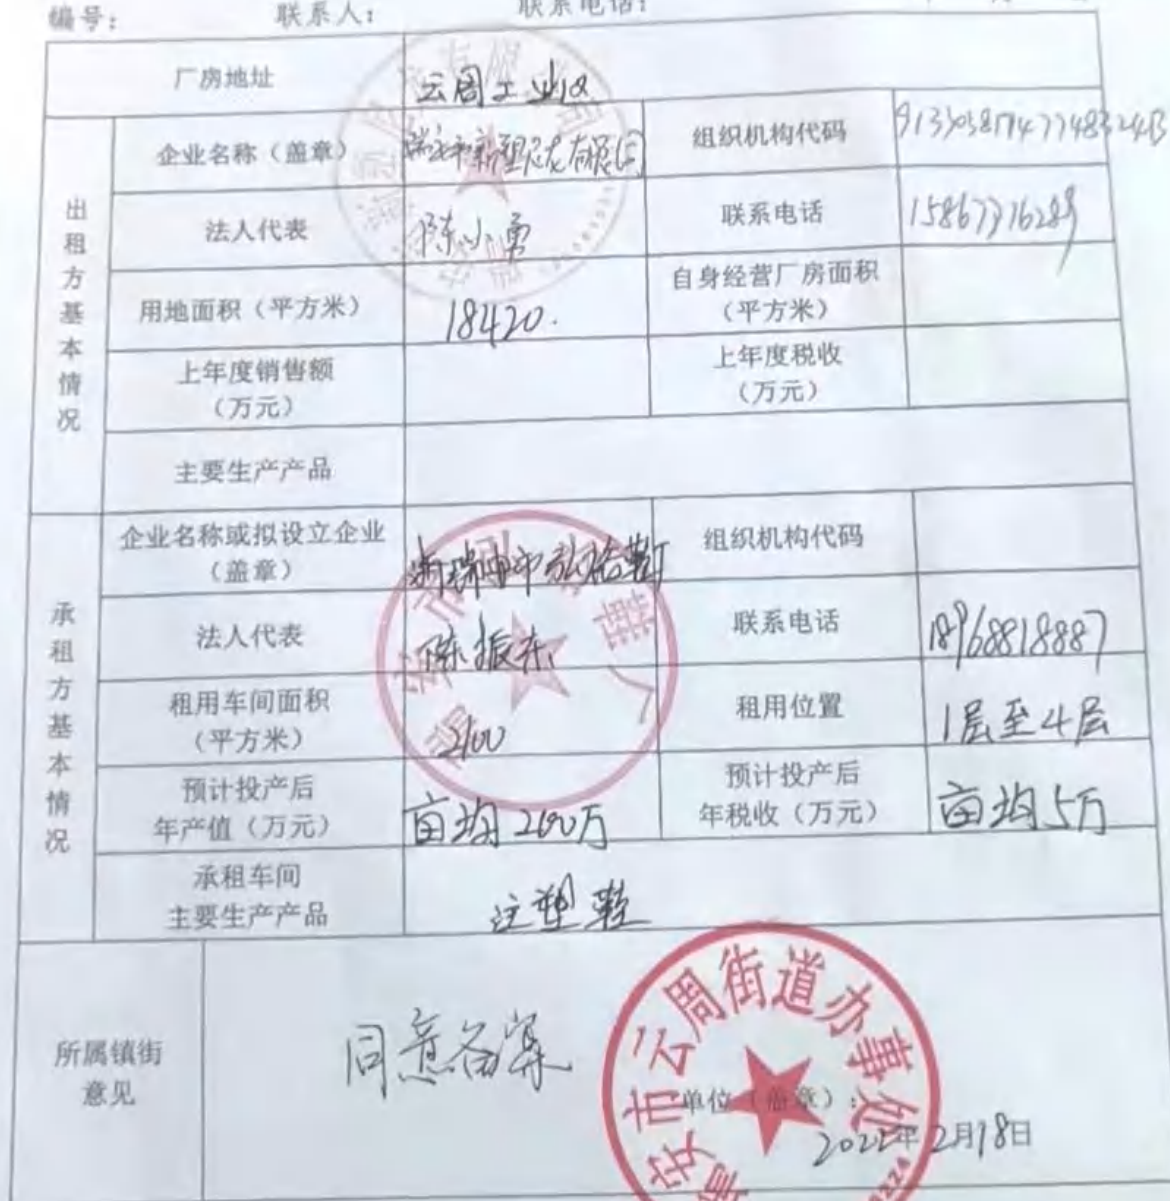 编号： 联系人： 联系电话：
厂房地址 云周工业区
出租方基本情况
企业名称（盖章） 瑞安市新塑尼龙有限公司 组织机构代码
法人代表 陈小勇 联系电话 15867716289
用地面积（平方米） 18420. 自身经营厂房面积
（平方米）
上年度销售额
（万元）
上年度税收
（万元）
主要生产产品
承租方基本情况
企业名称或拟设立企业
（盖章）
组织机构代码
法人代表 陈振东 联系电话 18968818887
租用车间面积
（平方米）
2100
租用位置 1层至4层
预计投产后
年产值（万元）
亩均200万
预计投产后
年税收（万元）
亩均5万
承租车间
主要生产产品
注塑鞋
所属镇街
意见
同意备案
瑞安市云周街道办事处
单位（盖章）：
2022年2月18日